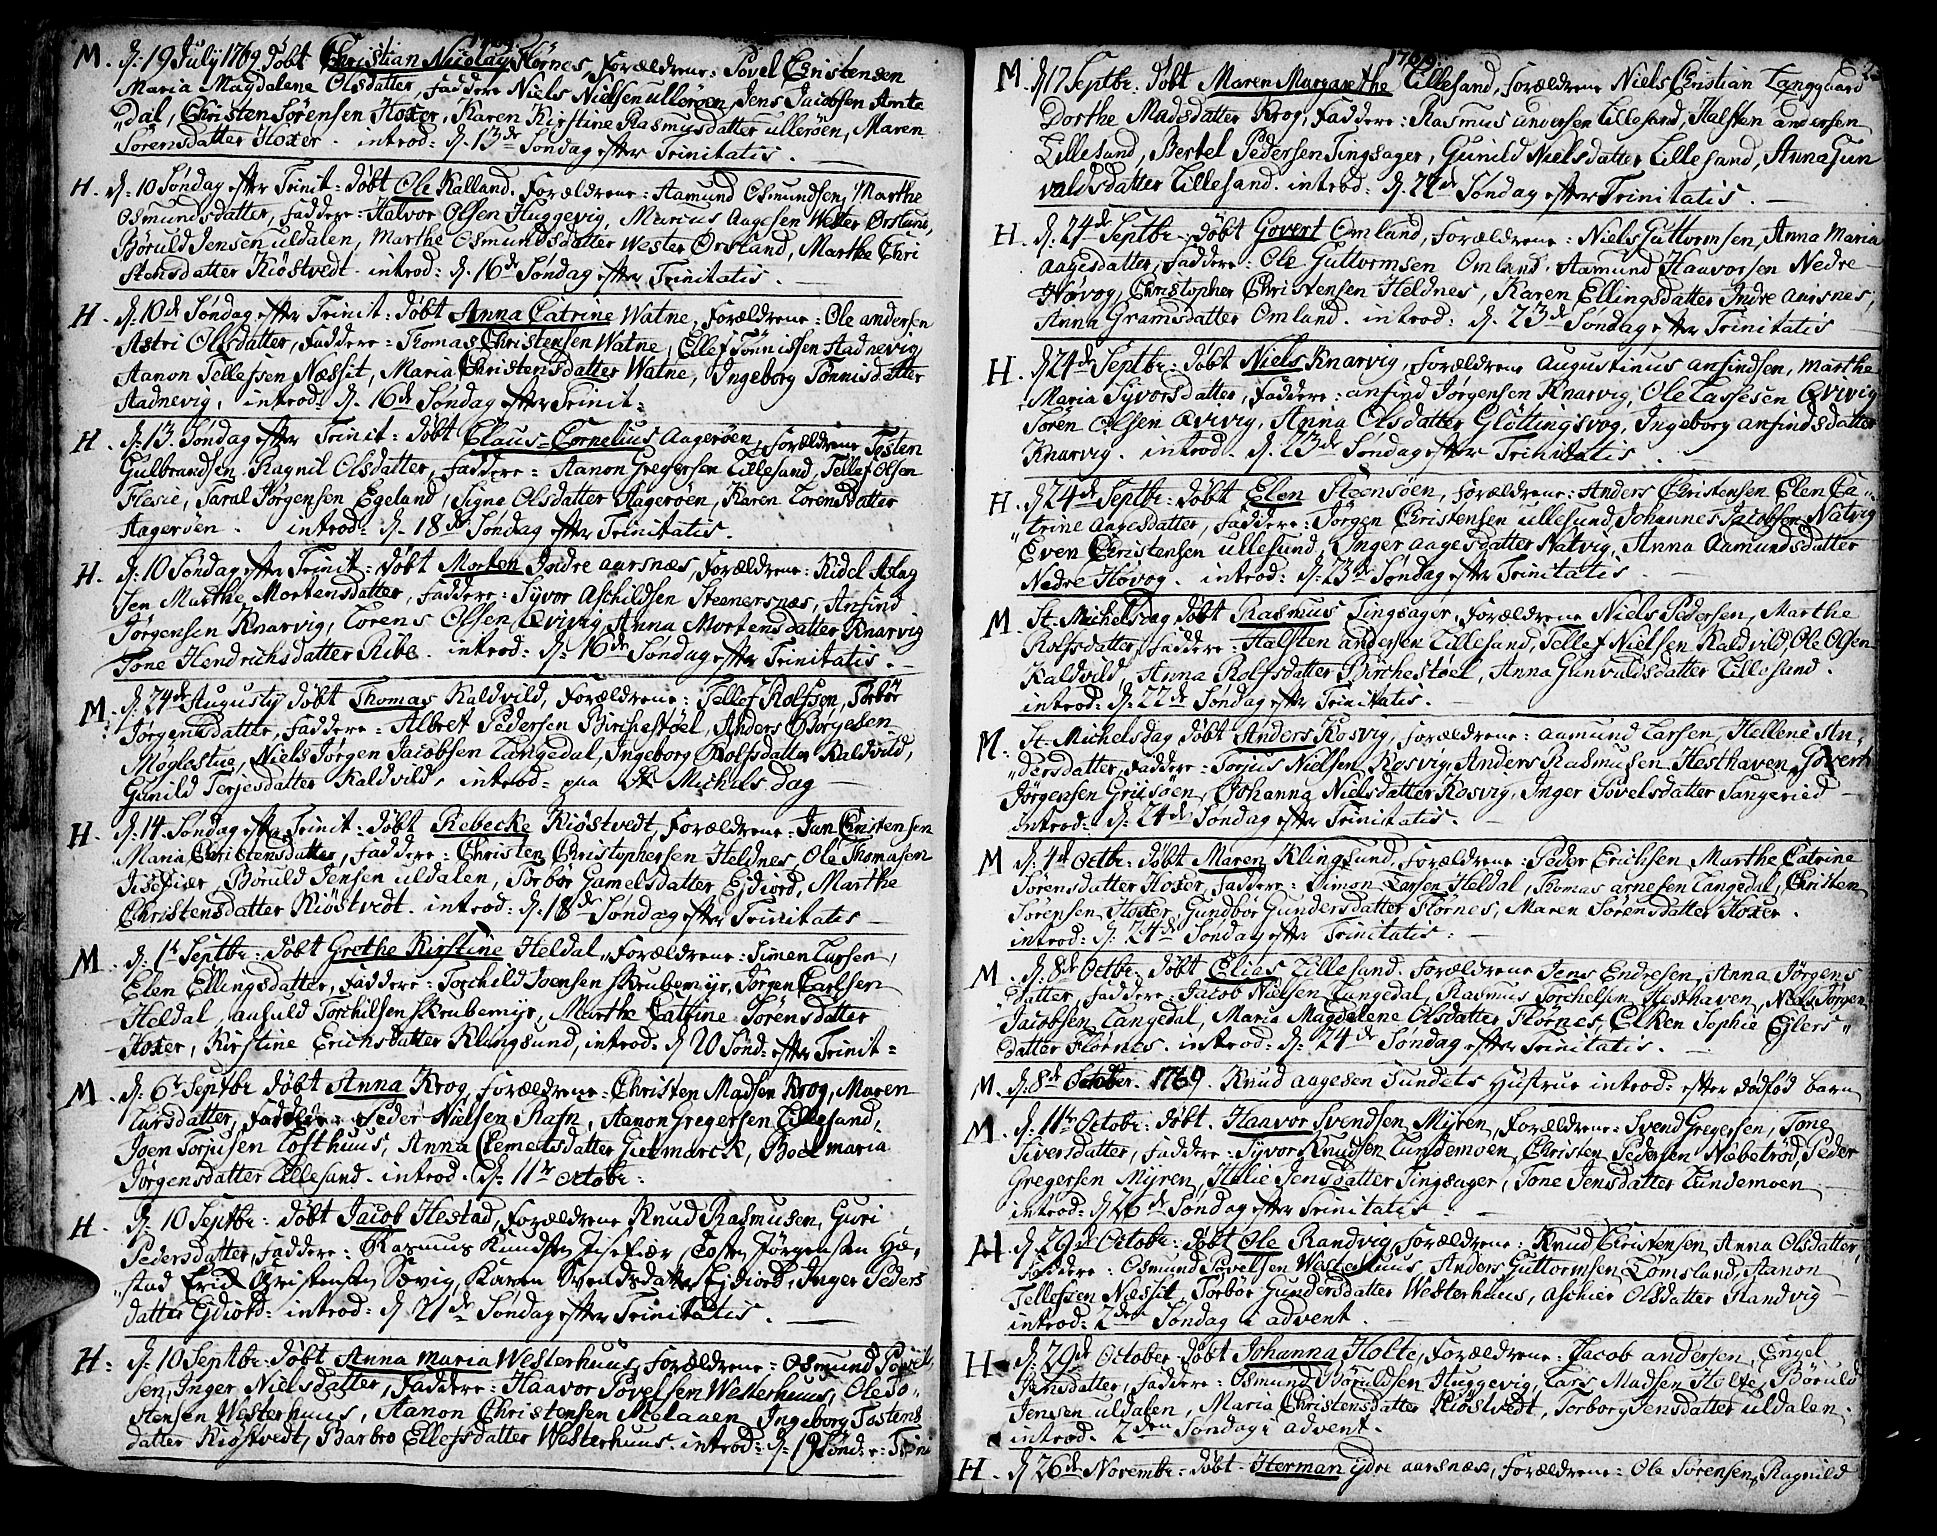 1769.
M. d: 19 Julij 1769 døbt Christian Nicolay Flørnes, Forældrene: Povel Christensen
Maria Magdalene Olsdatter, Faddere Niels Nielsen ullerøen, Jens Jacobsen Amte
"dal, Christen Sørensen Hoxer, Karen Kirstine Rasmusdatter ullerøen, Maren
Sørensdatter Hoxer. introd: d. 13de Søndag efter Trinitatis.
H. d: 10 Søndag efter Trinit: døbt Ole Kalland. Forældrene: Aamund Osmundsen, Marthe
Osmundsdatter, Faddere: Halvor Olsen Huggevig, Marcus Aagesen Wester Ørsland,
Børuld Jensen uldalen, Marthe Osmundsdatter Wester Ørsland, Marthe Chri
stensdatter Kiøstvedt. introd: d. 16de Søndag efter Trinitatis.
H. d: 10de Søndag efter Trinit: døbt Anna Catrine Watne, Forældrene: Ole andersen
Astri Olsdatter, Faddere: Thomas Christensen Watne, Ellef Tønnissen Stadnevig
Aanon Tellefsen Næsset, Maria Christensdatter Watne, Ingeborg Tønnisdatter
Stadnevig, introd: d. 16de Søndag efter Trinit:
H. d: 13. Søndag efter Trinit: døbt Claus=Cornelius Aagerøen, Forældrene Tosten
Gulbrandsen, Ragnil Olsdatter, Faddere: Aanon Gregersen Lillesand, Tellef Olsen
Flesie, Taral Jørgensen Egeland, Signe Olsdatter Hagerøen, Karen Lorensdatter
Aagerøen. introd: d. 18de Søndag efter Trinitatis.
H. d: 10 Søndag efter Trinit: døbt Morten Indre aarsnæs, Forældrene: Kidel Aslag
sen Marthe Mortensdatter, Faddere: Syvor Aschildsen Steenersnæs, Anfind
Jørgensen Knarvig, Lorens Olsen Qvivig, Anna Mortensdatter Knarvig
Tone Hendrichsdatter Ribe. introd: d: 16de Søndag efter Trinitatis.
M. d. 24de Augusty døbt Thomas Kaldvild, Forældrene: Tellef Rolfsen, Torbør
Jørgensdatter, Faddere: Albret Pedersen Birchestøel, Anders Børgesen
Møglestue, Niels Jørgen Jacobsen Langedal, Ingeborg Rolfsdatter Kaldvild,
Gunild Terjesdatter Kaldvild, introd: paa St Michels Dag
H. d: 14. Søndag efter Trinit: døbt Rebecke Kiøstvedt, Forældrene: Jan Christensen
Maria Christensdatter, Faddere: Christen Christophersen Heldnes, Ole Thomasen
Jisefiær, Børuld Jensen uldalen, Torbør Gamelsdatter Ejdiord, Marthe
Christensdatter Kiøstvedt. introd: d: 18de Søndag efter Trinitatis
M. d: 1te Septbr: døbt Grethe Kirstine Heldal, Forældrene: Simen Larsen,
Elen Ellingsdatter, Faddere: Torchild Joensen Skrubemyr, Jørgen Carlsen
Heldal, aufuld Torchilsen Skrubemyr, Marthe Catrine Sørensdatter
Hoxer, Kirstine Erichsdatter Klingsund, introd. d 20 Sønd: efter Trinit=
M. d: 6te Septbr døbt Anna Krog, Forældrene: Christen Madsen Krog, Maren
Larsdatter, Faddere Peder Nielsen Rafn, Aanon Gregersen Lillesand,
Joen Torjusen Tofthuus, Anna Clemetsdatter Gietmarck, Boel maria
Jørgensdatter Lillesand. introd. d: 11te octobr:
H. d: 10 Septbr: døbt Jacob Hestad, Forældrene Knud Rasmusen, Guri
Pedersdatter, Faddere: Rasmus Knudsen Jisefiær, Tosten Jørgensen He,
"stad Erich Christensen Sævig, Karen Svendsdatter Ejdiord, Inger Peders
datter Ejdiord: introd: d 21de Søndag efter Trinitatis.
H: d: 10 Septbr: døbt Anna Maria Westerhuus, Forældrene: Osmund Povel,
sen, Inger Nielsdatter, Faddere: Haavor Povelsen Westerhuus, Ole To=
stensen Westerhuus, Aanon Christensen Molaaen, Ingeborg Tostens
datter Kiøstvedt, Barbro Ellefsdatter Westerhuus. introd: d: 19 Sønd: e: Trini
1769.
M d 17 Septbr: døbt Maren Margarethe Lillesand, Forældrene Niels Christian Langgaard
Dorthe Madsdatter Krog, Faddere: Rasmus andersen Lillesand, Halsten andersen
Lillesand, Bertel Pedersen Tingsager, Gunild Nielsdatter Lillesand, Anna Gun
valdsdatter Lillesand. introd: d. 22de Søndag efter Trinitatis.
H. d. 24de Septbr døbt Govert Omland, Forældrene: Niels Guttormsen, Anna Maria
Aagesdatter, Faddere: Ole Guttormsen Omland. Aamund Haavorsen Nedre
Høvog, Christopher Christensen Heldnes, Karen Ellingsdatter Indre aarsnes,
Anna Gramsdatter Omland. introd: d. 23de Søndag efter Trinitatis
H. d 24de Septbr: døbt Niels Knarvig, Forældrene Augustinus anfindsen, Marthe
Maria Syvorsdatter, Faddere: anfind Jørgensen Knarvig, Ole Lassesen Qvivig
Søren Olsen Qvivig, Anna Olsdatter Gløttingsvog, Ingeborg anfindsdatter
Knarvig. introd. d. 23de Søndag efter Trinitatis.
H. d 24de Septbr: døbt Elen Steensøen, Forældrene: Anders Christensen Elen Ca"
"trine Aanesdatter, Faddere: Jørgen Christensen ullesund, Johannes Jacobsen Natvig
Even Christensen ullesund, Inger aagesdatter Natvig, Anna Aamundsdatter
Nedre Høvog. introd: d. 23de Søndag efter Trinitatis.
M. St. Michelsdag døbt Rasmus Tingsager, Forældrene Niels Pedersen, Marthe
Rolfsdatter, Faddere: Halsten andersen Lillesand, Tellef Nielsen Kaldvild, Ole Olsen
Kaldvild, Anna Rolfsdatter Birchestøel, Anna Gunvaldsdatter Lillesand.
introd: d: 22de Søndag efter Trinitatis.
M. St. Michelsdag døbt Anders Kosvig, Forældrene: aamund Larsen, Hellene An,
"dersdatter, Faddere: Torjus Nielsen Kosvig, Anders Rasmusen Hesthaven, Govert
Jørgensen Griisøen, Johanna Nielsdatter Kosvig, Inger Povelsdatter Tangeried
introd: d: 24de Søndag efter Trinitatis.
M d: 4de Octbr: døbt Maren Klingsund, Forældrene: Peder Erichsen Marthe Catrine
Sørensdatter Hoxer, Faddere: Simon Larsen Heldal, Thomas arnesen Langedal, Christen
Sørensen Hoxer, Gundbør Gundersdatter Flørnes, Maren Sørensdatter Hoxer.
introd: d: 24de Søndag efter Trinitatis:
M. d. 8de Octbr: døbt Elias Lillesand. Forældrene Jens Endresen, Anna Jørgens
datter, Faddere: Jacob Nielsen Langedal, Rasmus Torchelsen Hesthaven, Niels Jørgen
Jacobsen Langedal, Maria Magdalene Olsdatter Flørnes, Elken Sophie Ejlers"
datter Flørnes. introd: d: 24de Søndag efter Trinitatis.
M. d: 8de October. 1769. Knud aagesen Sundets Hustrue introd: efter dødfød barn
M. d. 11te Octobr: døbt. Haavor Svendsen Myren, Forældrene: Svend Gregersen, Tone
Siversdatter, Faddere: Syvor Knudsen Lundemoen, Christen Pedersen Næbetrød, Peder
Gregersen Myren, Helie Jensdatter Tingsager, Tone Jensdatter Lundemoen
introd: d 26de Søndag efter Trinitatis.
H d. 29de Octobr: døbt Ole Randvig, Forældrene: Knud Christensen, Anna Olsdatter,
Faddere: Osmund Povelsen Westerhuus, Anders Guttormsen Lomsland, Aanon
Tellefsen Næsset, Torbør Gundersdatter Westerhuus, aschier Olsdatter Randvig
introd: 2den Søndag i advent.
H d. 29de October døbt Johanna Holte, Forældrene: Jacob andersen, Engel
Jensdatter, Faddere: Osmund Børuldsen Huggevig, Lars Madsen Holte, Børuld
Jensen uldalen, Maria Christensdatter Kiøstvedt, Torborg Jensdatter uldalen.
introd. 2den Søndag i advent.
H. d 26de Novembr: døbt. Herman ydre aarsnæs, Forældrene: Ole Sørensen, Ragnild